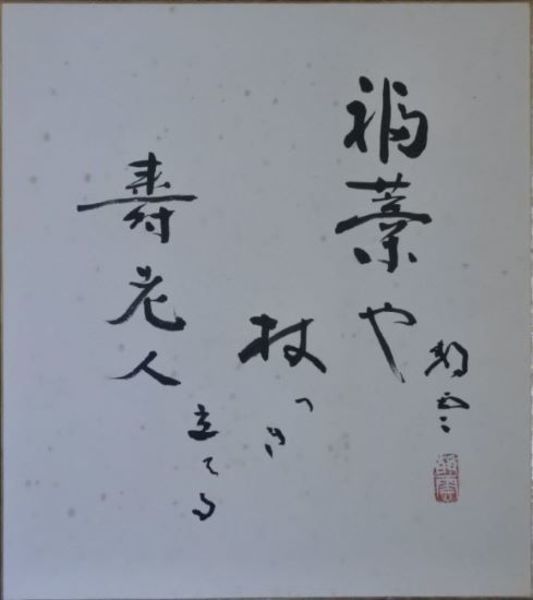 福藁や
杖つき
立てる
寿老人